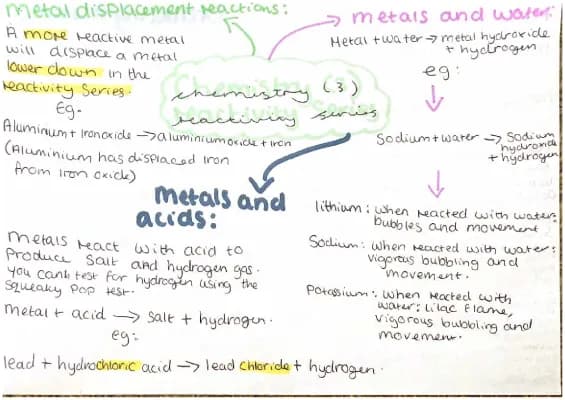 Metal displacement reactions:
A more reactive metal
will displace a metal
lower down in the
reactivity series.
Eg.
Aluminum + Iron oxide → aluminium oxide + iron
(Aluminium has displaced Iron
from Iron oxide)
chemistry (3)
reactivity series
metals and water:
Metal + water → metal hydroxide
+ hydrogen
eg:
Sodium + water → Sodium
hydroxide
+ hydrogen
lithium: when reacted with water:
bubbles and movement
Sodium: when reacted with water:
vigorous bubbling and
movement.
Potassium: when reacted with
water: lilac flame,
vigorous bubbling and
movement.
Metals and
acids:
Metals react with acid to
produce salt and hydrogen gas.
You can test for hydrogen using the
squeaky pop test.
metal + acid → salt + hydrogen.
eg:
lead + hydrochloric acid → lead chloride + hydrogen.